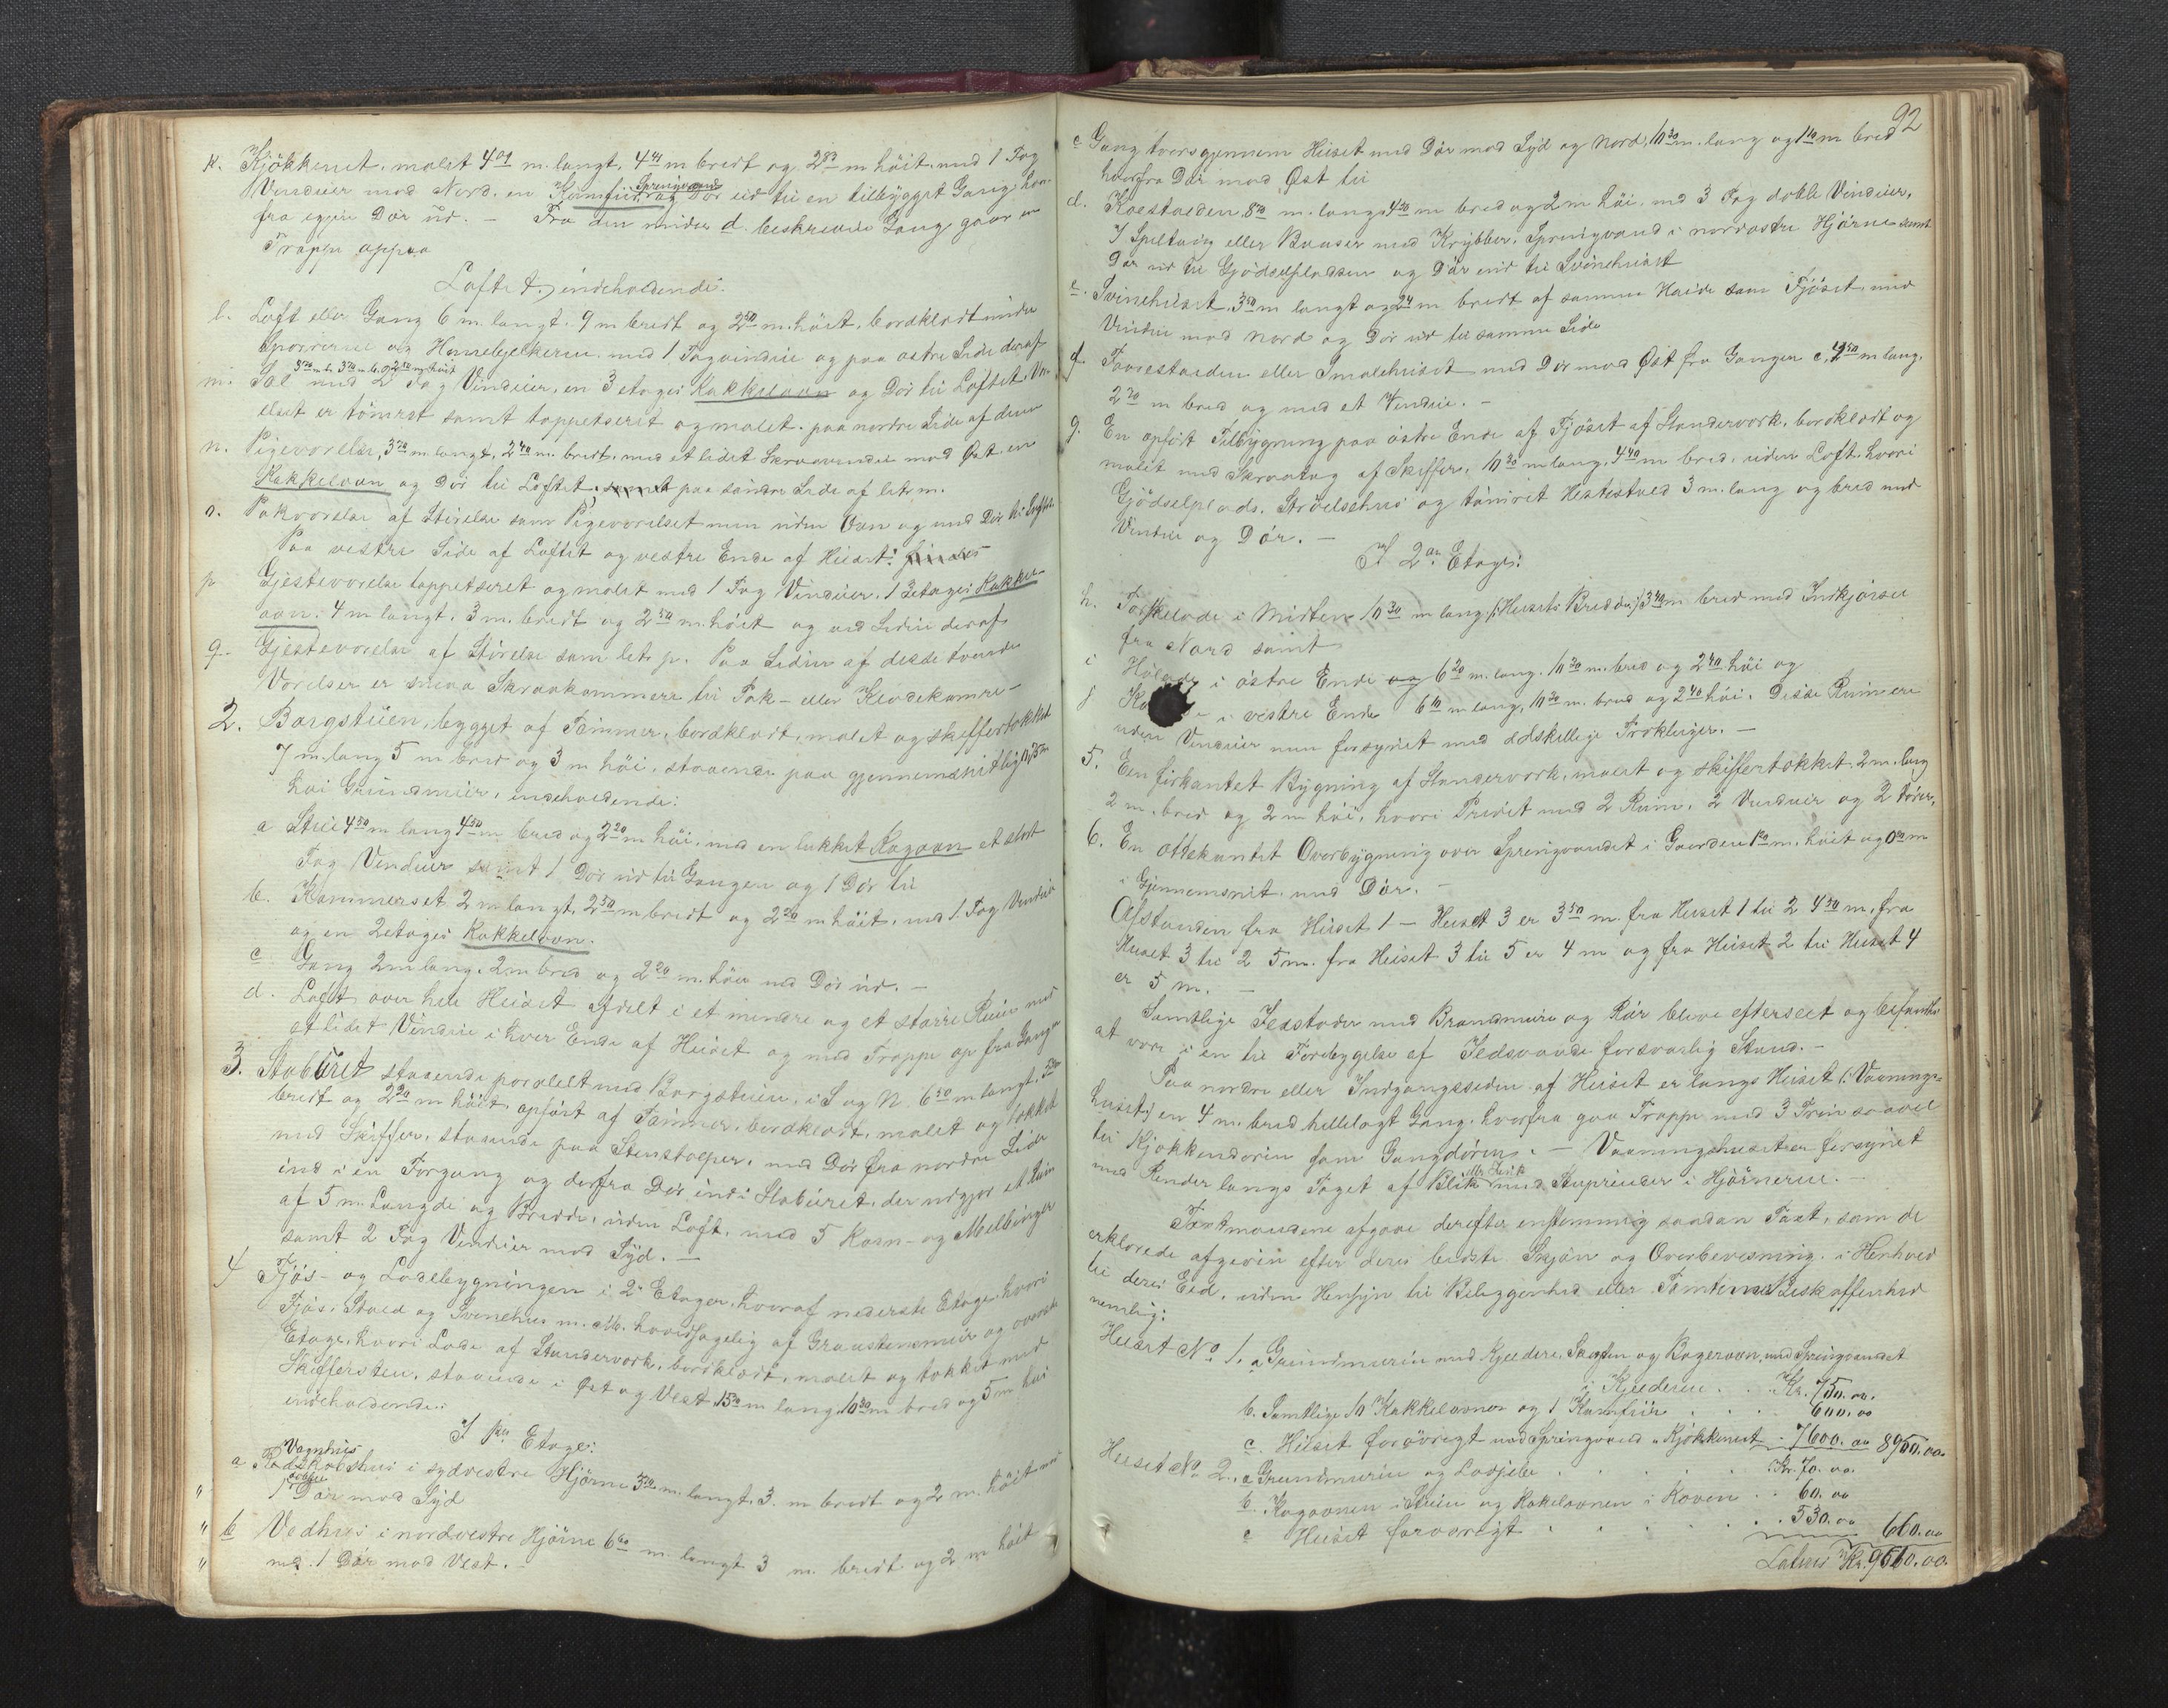 k. Kjökkenet, malet 4⁰¹ m. langt, 4⁴¹ m bredt og 2⁸³ m höit, med 1 Fag
Vinduer mod Nord, en Komfur, Springvand og Dör ud til en tilbygget Gang, hvor-
fra igjen Dör ud. — Fra den under d. beskrevne Gang gaar en
Trappe oppaa
Loftet, indeholdende:
l. Loft eller Gang 6 m. langt, 9 m bredt og 2⁵⁰ m. höit, bordklædt under
Sperrerne og Hanebjelkerne med 1 Fag vindue og paa östre Side deraf
m. Sal 5⁷⁰ m l. 3⁷⁰ m. b. og 2⁵⁰ m höit med 2 Fag Vinduer, en 3 etages Kakkelovn og Dör til Loftet. Væ-
elset er tömret samt tappetseret og malet. paa nordre Side af denne
n. Pigeværelse, 3⁷⁰ m. langt, 2⁴⁰ m. bredt, med et lidet Skraavindue mod Öst, en
Kakkelovn og Dör til Loftet, samt paa söndre Side af litr m.
o. Pakværelse af Störelse som Pigeværelset men uden Ovn og med Dör til Loftet.
Paa vestre Side af Loftet og vestre Ende af Huset: findes
p. Gjesteværelse tappetseret og malet med 1 Fag Vinduer, 1 3etages Kakkel-
ovn, 4 m langt, 3 m. bredt og 2⁵⁰ m. höit og ved Siden deraf
q. Gjesteværelse af Störelse som litr p. Paa Siden af disse tvende
Værelser er smaa Skraakammere til Pak- eller Klædekamre —
2. Borgstuen, bygget af Tömmer, bordklædt, malet og skiffertækket
7 m. lang 5 m bred og 3 m höi, staaende paa gjennemsnitlig 0,75 m
höi Grundmur, indeholdende:
a Stue 4⁵⁰ m lang 4⁵⁰ m bred og 2²⁰ m höi, med en lukket Kogeovn et stort
Fag Vinduer samt 1 Dör ud til Gangen og 1 Dör til
b. Kammerset 2 m langt, 2⁵⁰ m bredt og 2²⁰ m höit, med 1 Fag Vinduer
og en 2etages Kakkelovn.
c Gang 2 m lang, 2 m bred og 2²⁰ m. höi med Dör ud. —
d. Loft over hele Huset afdelt i et mindre og et större Rum med
et lidet Vindue i hver Ende af Huset og med Trappe op fra Gangen
3. Staburet staaende paralelt med Borgstuen, i S og N. 6⁵⁰ m langt, 5 m
bredt og 2²⁰ m höit, opfört af Tömmer, bordklædt, malet og tækket
med Skiffer, staaende paa Stenstolper, med Dör fra nordre Side
ind i en Forgang og derfra Dör ind i Staburet, der udgjör et Rum
af 5 m. Længde og Bredde, uden Loft, med 5 Korn- og Melbinger
samt 2 Fag Vinduer mod Syd. —
4 Fjös- og Ladebygningen i 2 Etager, hvoraf nederste Etage, hvori
Fjös, Stald og Svinehus m. M. hovedsagelig af Graastensmur og överste
Etage, hvori Lade af Standerverk, bordklædt, malet og tækket med
Skiffersten, staaende i Öst og Vest, 15⁷⁰ m lang, 10³⁰ m bred og 5 m höi
indeholdende:
I 1ste Etage:
a Redskabshus Vognhus i sydvestre Hjörne 3⁷⁰ m. langt, 3 m. bredt og 2 m. höit med
" 1 dobbelt Dör mod Syd
" b Vedhus i nordvestre Hjörne 6⁶⁰ m. langt 3 m. bredt og 2 m höit
" med 1 Dör mod Vest. —
92
c Gang tversgjennem Huset med Dör mod Syd og Nord, 10³⁰ m. lang og 1¹⁰ m bred
hvorfra Dör mod Öst til
d. Kostalden 8⁷⁰ m. lang, 4⁷⁰ m bred og 2 m höi, med 3 Fag doble Vinduer,
7 Spiltoug eller Baaser med Krybber, Springvand i nordöstre Hjörne samt
Dör ud til Gjödselpladsen og Dör ind til Svinehuset
e. Svinehuset, 3⁵⁰ m langt og 2⁴ m. bredt af samme Höide som Fjöset, med
Vindue mod Nord og Dör ud til samme Side
f. Faarestalden eller Smalehuset med Dör mod Öst fra Gangen c, 4⁵⁰ m lang,
2²⁰ m bred og med et Vindue. —
g. En opfört Tilbygning paa östre Ende af Fjöset af Standerverk, bordklædt og
malet med Skraatag af Skiffer, 10³⁰ m lang, 4⁴⁰ m bred, uden Loft, hvori
Gjödselplads, Ströelsehus og tömret Hestestald 3 m. lang og bred med
Vindue og Dör. —
I 2den Etage:
h. Törskelade i Midten 10³⁰ m lang (: Husets Bredde :) 3⁴⁰ m bred med Indkjörsel
fra Nord samt
i Hölade i östre Ende og 6²⁰ m. lang, 10³⁰ m. bred og 2⁴⁰ höi og
j i vestre Ende 6¹⁰ m lang, 10³⁰ m. bred og 2⁴⁰ höi. Disse Rum ere
uden Vinduer men forsynet med adskillige Trækluger. —
5. Een firkantet Bygning af Standerverk, malet og skiffertækket, 2 m. lang
2 m. bred og 2 m höi, hvori Privet med 2 Rum, 2 Vinduer og 2 Dörer,
6. En ottekantet Overbygning over Springvandet i Gaarden 1⁸⁰ m. höit og 0⁸⁰ m
i Gjennemsnit med Dör. —
Afstanden fra Huset 1 — Huset 3 er 3⁵⁰ m. fra Huset 1 til 2 4⁵⁰ m, fra
Huset 3 til 2 5 m. fra Huset 3 til 5 er 4 m og fra Huset 2 til Huset 4
er 5 m. —
Samtlige Ildsteder med Brandmure og Rör bleve efterseet og befandtes
at være i en til Forebyggelse af Ildsvaade forsvarlig Stand. —
Paa nordre eller Indgangssiden af Huset er langs Huset (: Vaanings-
huset :) en 4 m. bred hellelagt Gang, hvorfra gaa Trappe med 3 Trin saavel
til Kjökkendören som Gangdören. — Vaaningshuset er forsynet
med Render langs Taget af Blik eller Sink med Stuprender i Hjörnerne. —
Taxtmændene afgave derefter enstemmig saadan Taxt, som de
erklærede afgiven efter deres bedste Skjön og Overbevisning, i Henhold
til deres Eed, uden Hensyn til Beliggenhed eller Tomtens Beskaffenhed
nemlig:
Huset No 1. a Grundmuren med Kjeldere, Skorsten og Bagerovn, med Springvandet
i Kjelderen . . . Kr. 750.00.
b. Samtlige 10 Kakkelovner og 1 Komfur . . . 600.00
c. Huset forövrigt med Springvand i Kjökkenet - 7600.00 8950.00.
Huset No 2. a Grundmuren og Lodpibe . . . . Kr. 70.00.
b. Kogeovnen i Stuen og Kakelovnen i Koven . . 60.00
c Huset forövrigt . . . . . 530.00 660.00
Latus Kr. 9610.00.